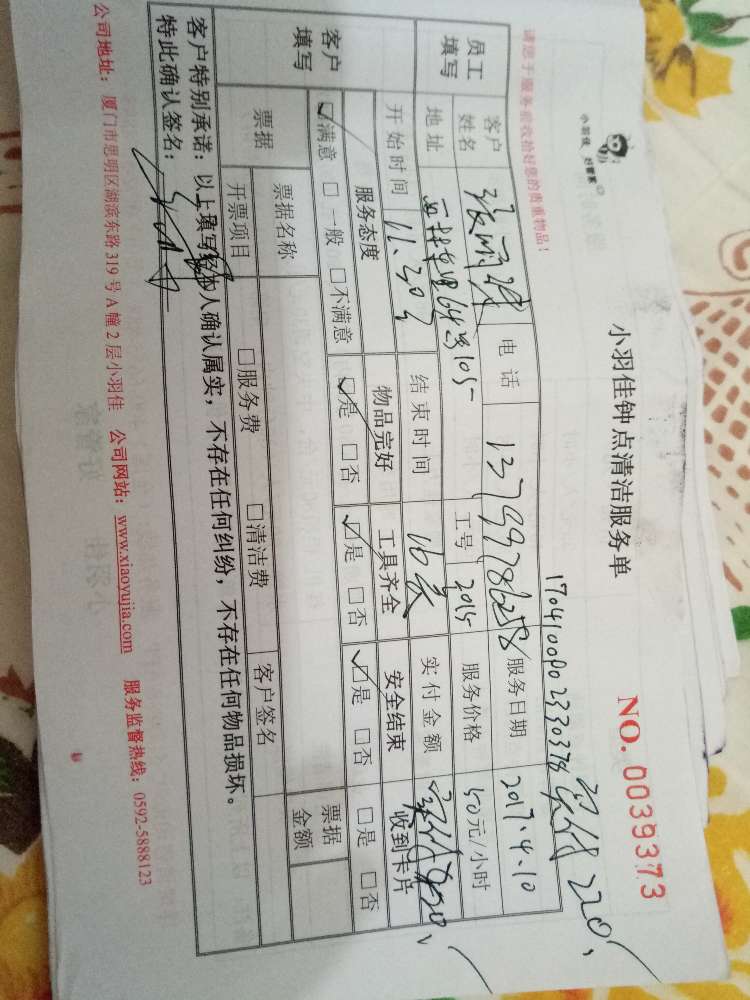 小羽佳 好管家
小羽佳钟点清洁服务单
NO. 0039373
请您于服务前收拾好您的贵重物品!
实付220
员工填写 客户姓名 电话 13799786258 服务日期 2017.4.10
地址 工号 2015 服务价格 50元/小时
开始时间 11.30 结束时间 16 实付金额 实付220
客户填写 服务态度 物品完好 工具齐全 安全结束 收到卡片
☑满意 □一般 □不满意 ☑是 □否 ☑是 □否 ☑是 □否 □是 □否
票据 票据名称 票据金额
开票项目 □服务费 □清洁费 客户签名
客户特别承诺:以上填写经本人确认属实,不存在任何纠纷,不存在任何物品损坏。
特此确认签名:
公司地址:厦门市思明区湖滨东路319号A幢2层小羽佳 公司网站:www.xiaoyujia.com 服务监督热线:0592-5888123